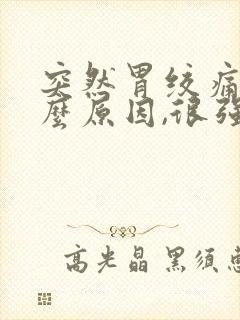 突然胃绞痛
麼原因,很强
高光晶 黑须惠